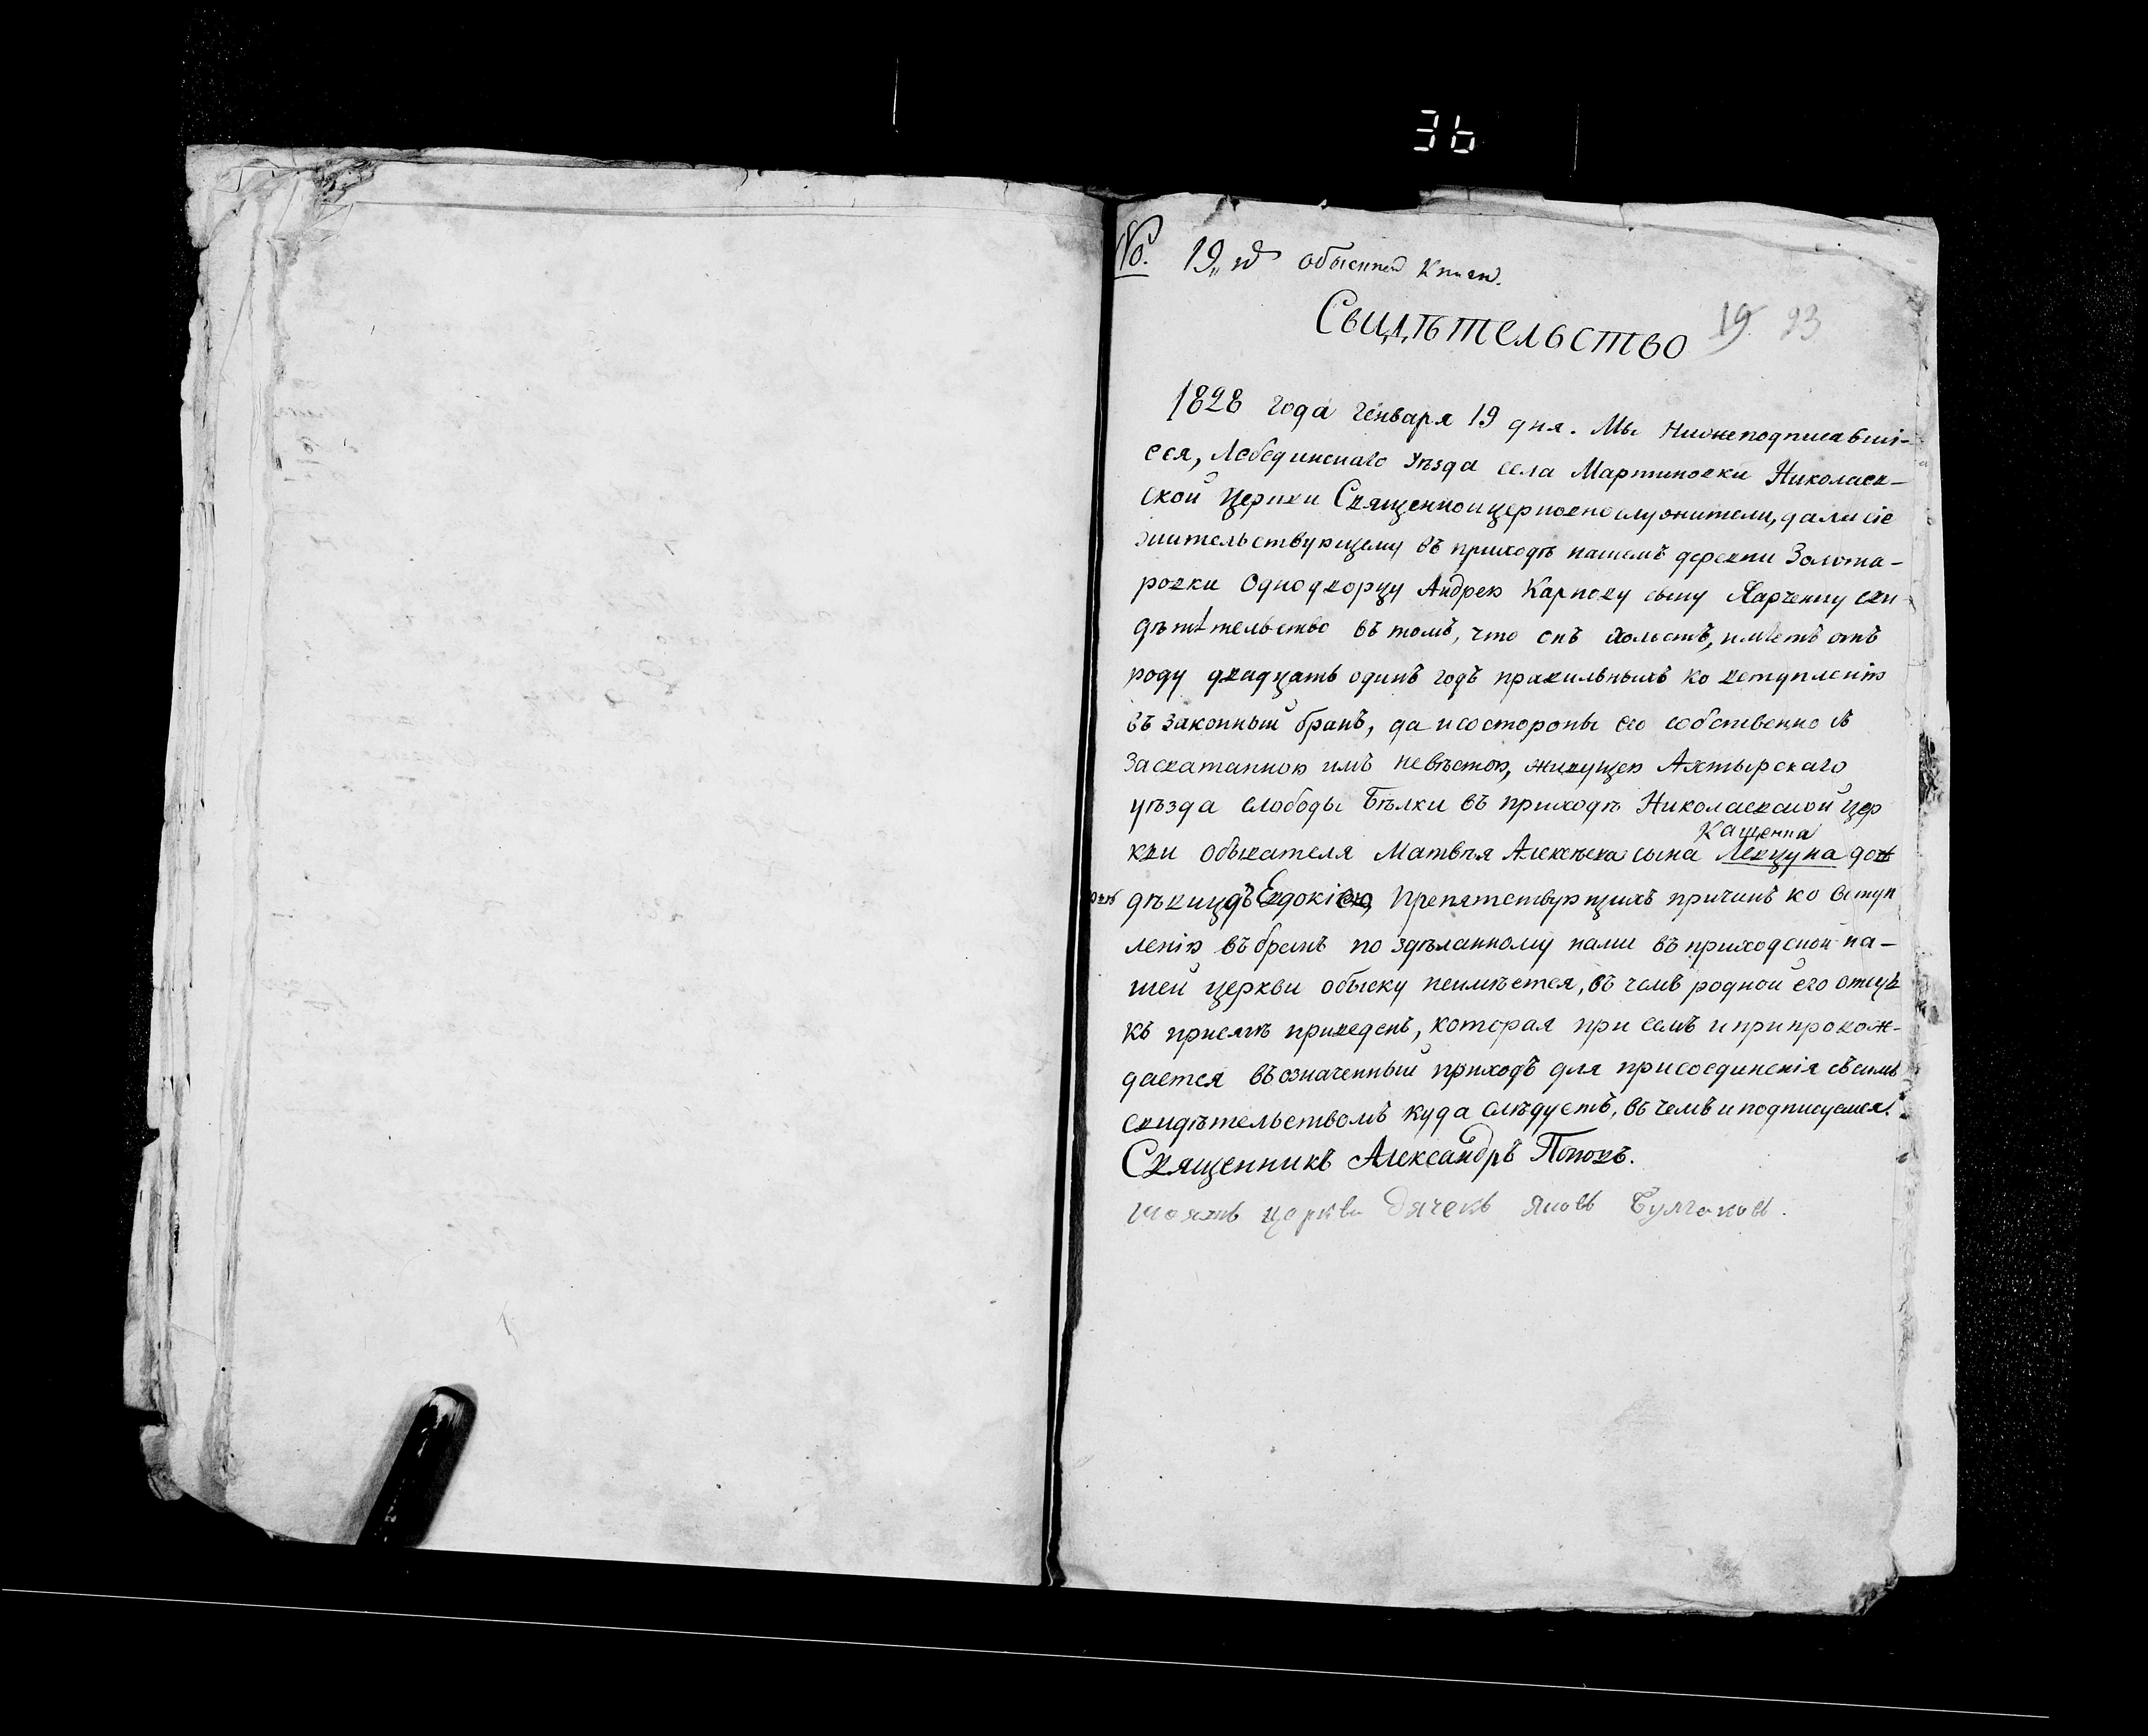 36
№. 19й обыскной книги.
Свидѣтельство 19. 93
1828 года генваря 19 дня. Мы нижеподписавші-
еся, Лебединскаго уѣзда села Мартиновки Николаев-
ской церкви Священноицерковнослужители, дали сіе
жительствующему въ приходѣ нашемъ деревни Золота-
ровки Однодворцу Андрею Карпову сыну Харченку сви-
дѣтѣтельство въ томъ, что онъ холостъ, имѣетъ отъ
роду двадцать одинъ годъ правильныхъ ко вступленію
въ законный бракъ, да и состороны его собственно съ
засватанною имъ невѣстою, живущею Ахтырскаго
уѣзда слободы Бѣлки въ приходѣ Николаевской цер
кви обывателя Матвѣя Алексѣева сына Левцуна доч
Кащенка
дѣвицъ Евдокіею, Препятствующихъ причинъ ко вступ
ленію въ бракъ по здѣланному нами въ приходской на-
шей церкви обыску неимѣется, въ чемъ родной его отецъ
къ присягѣ приведенъ, которая при семъ и припровож-
дается въ означенный приходъ для присоединенія съ симъ
свидѣтельствомъ куда слѣдуетъ, въ чемъ и подписуемся.
Священникъ Александръ Поповъ.
церкви Дячекъ Яковъ Булгаковъ.